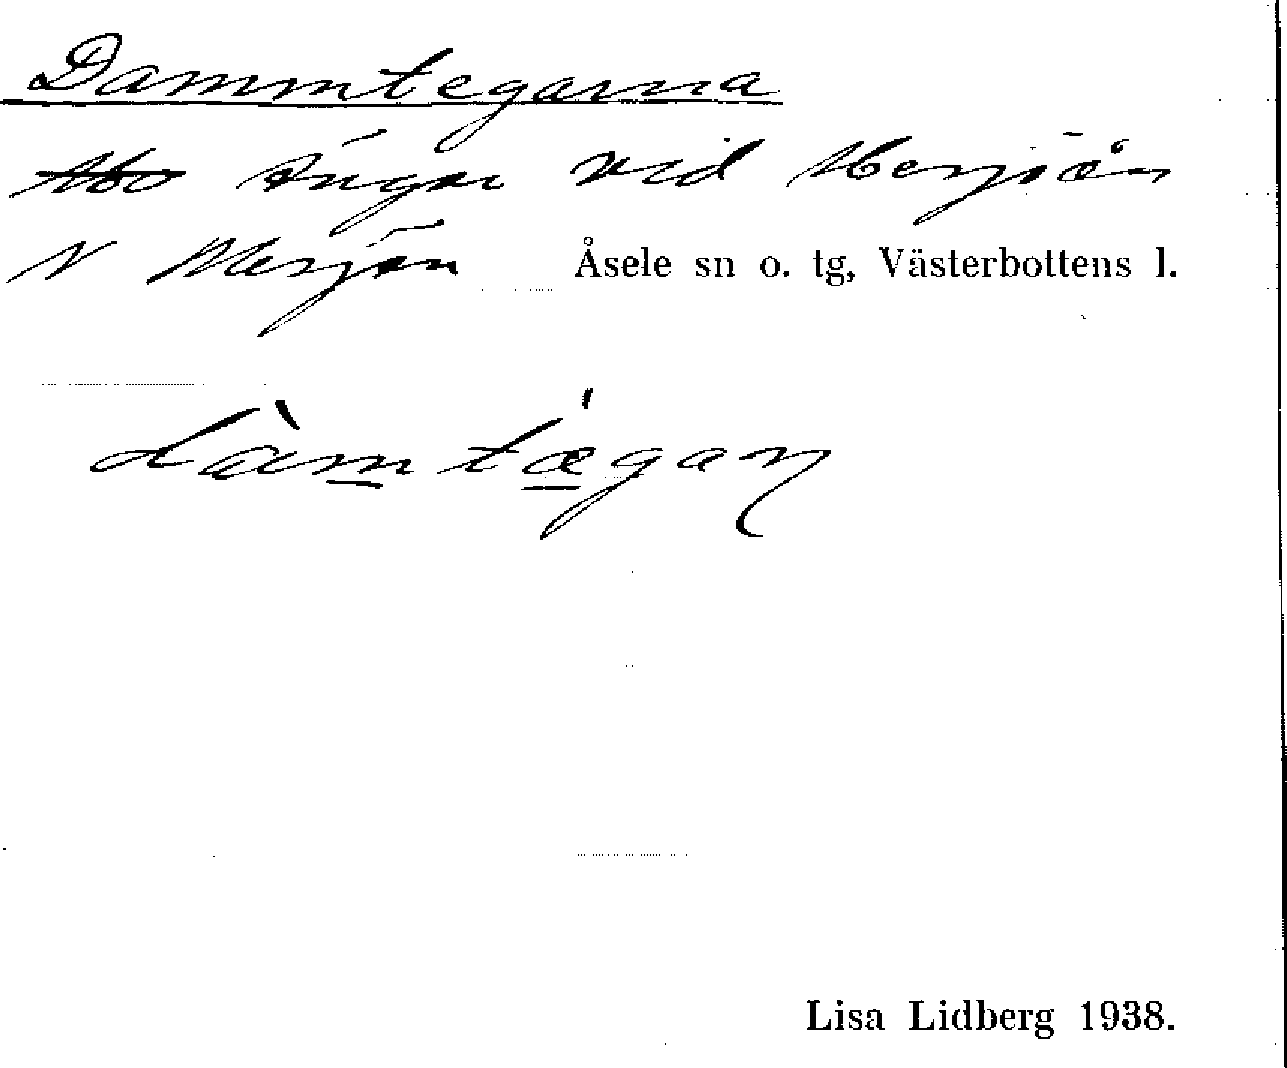 Dammtegarna
Ängar vid Mesjöån
N Mesjön Åsele sn o. tg, Västerbottens l.
Lisa Lidberg 1938.